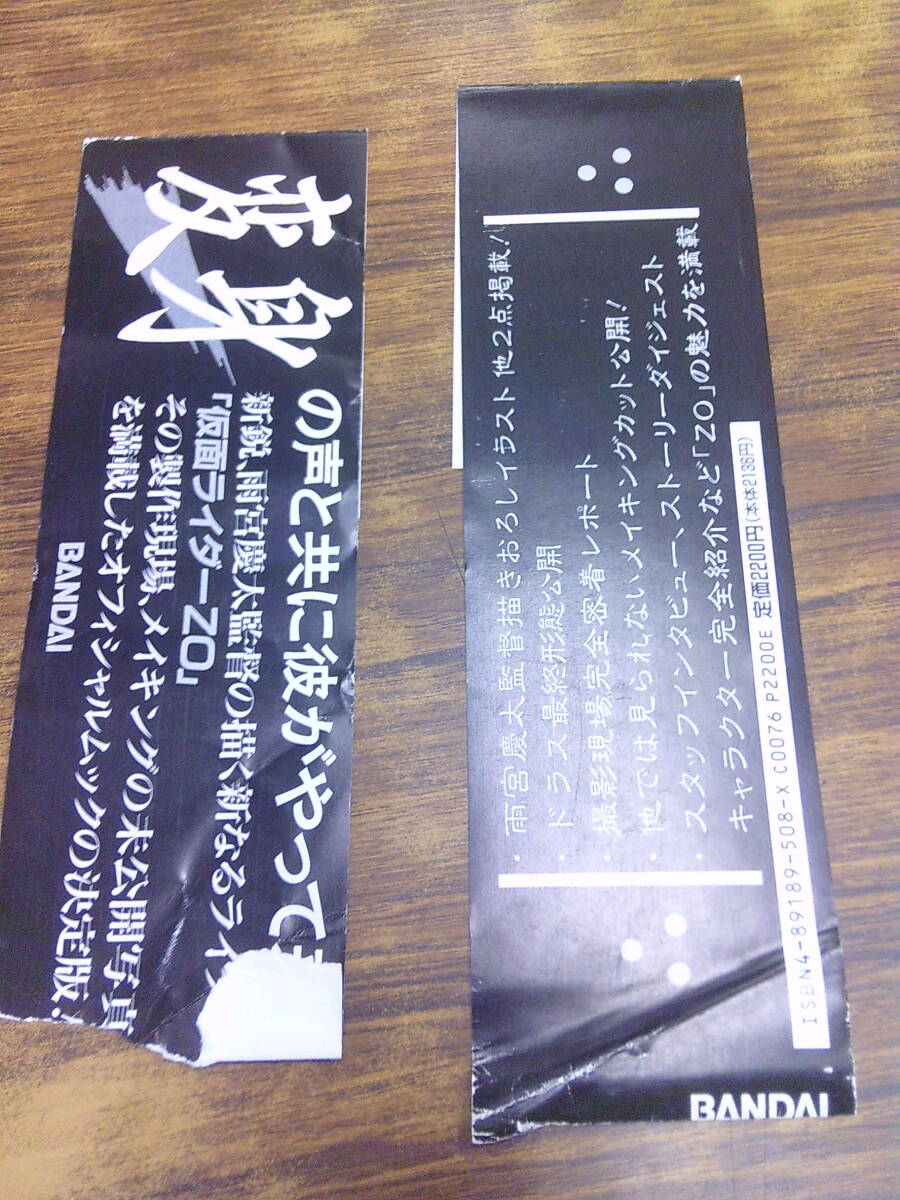 変身
の声と共に彼がやって
新鋭、雨宮慶太監督の描く新なるライ
「仮面ライダーZO」
その製作現場、メイキングの未公開写真
を満載したオフィシャルムックの決定版!
BANDAI
・雨宮慶太監督描きおろしイラスト他2点掲載!
・ドラス最終形態公開
・撮影現場完全密着レポート
・他では見られないメイキングカット公開!
・スタッフインタビュー、ストーリーダイジェスト
キャラクター完全紹介など「ZO」の魅力を満載
ISBN4-89189-508-X C0076 P2200E 定価2200円(本体2136円)
BANDAI